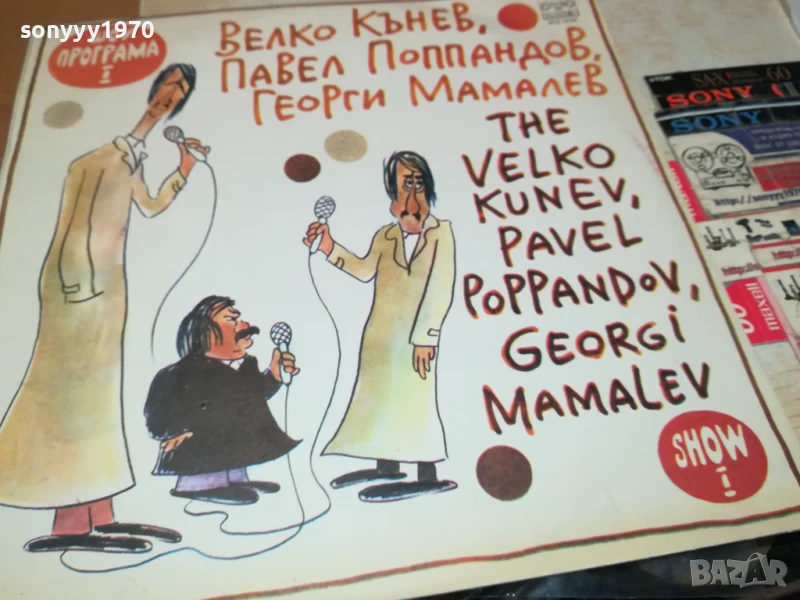 sonyyy1970
ПРОГРАМА
I
ВЕЛКО КЪНЕВ,
ПАВЕЛ ПОППАНДОВ,
ГЕОРГИ МАМАЛЕВ
THE
VELKO
KUNEV,
PAVEL
POPPANDOV,
GEORGI
MAMALEV
SHOW
I
TDK
SA-X
60
SONY
SONY
maxell
BAZAR